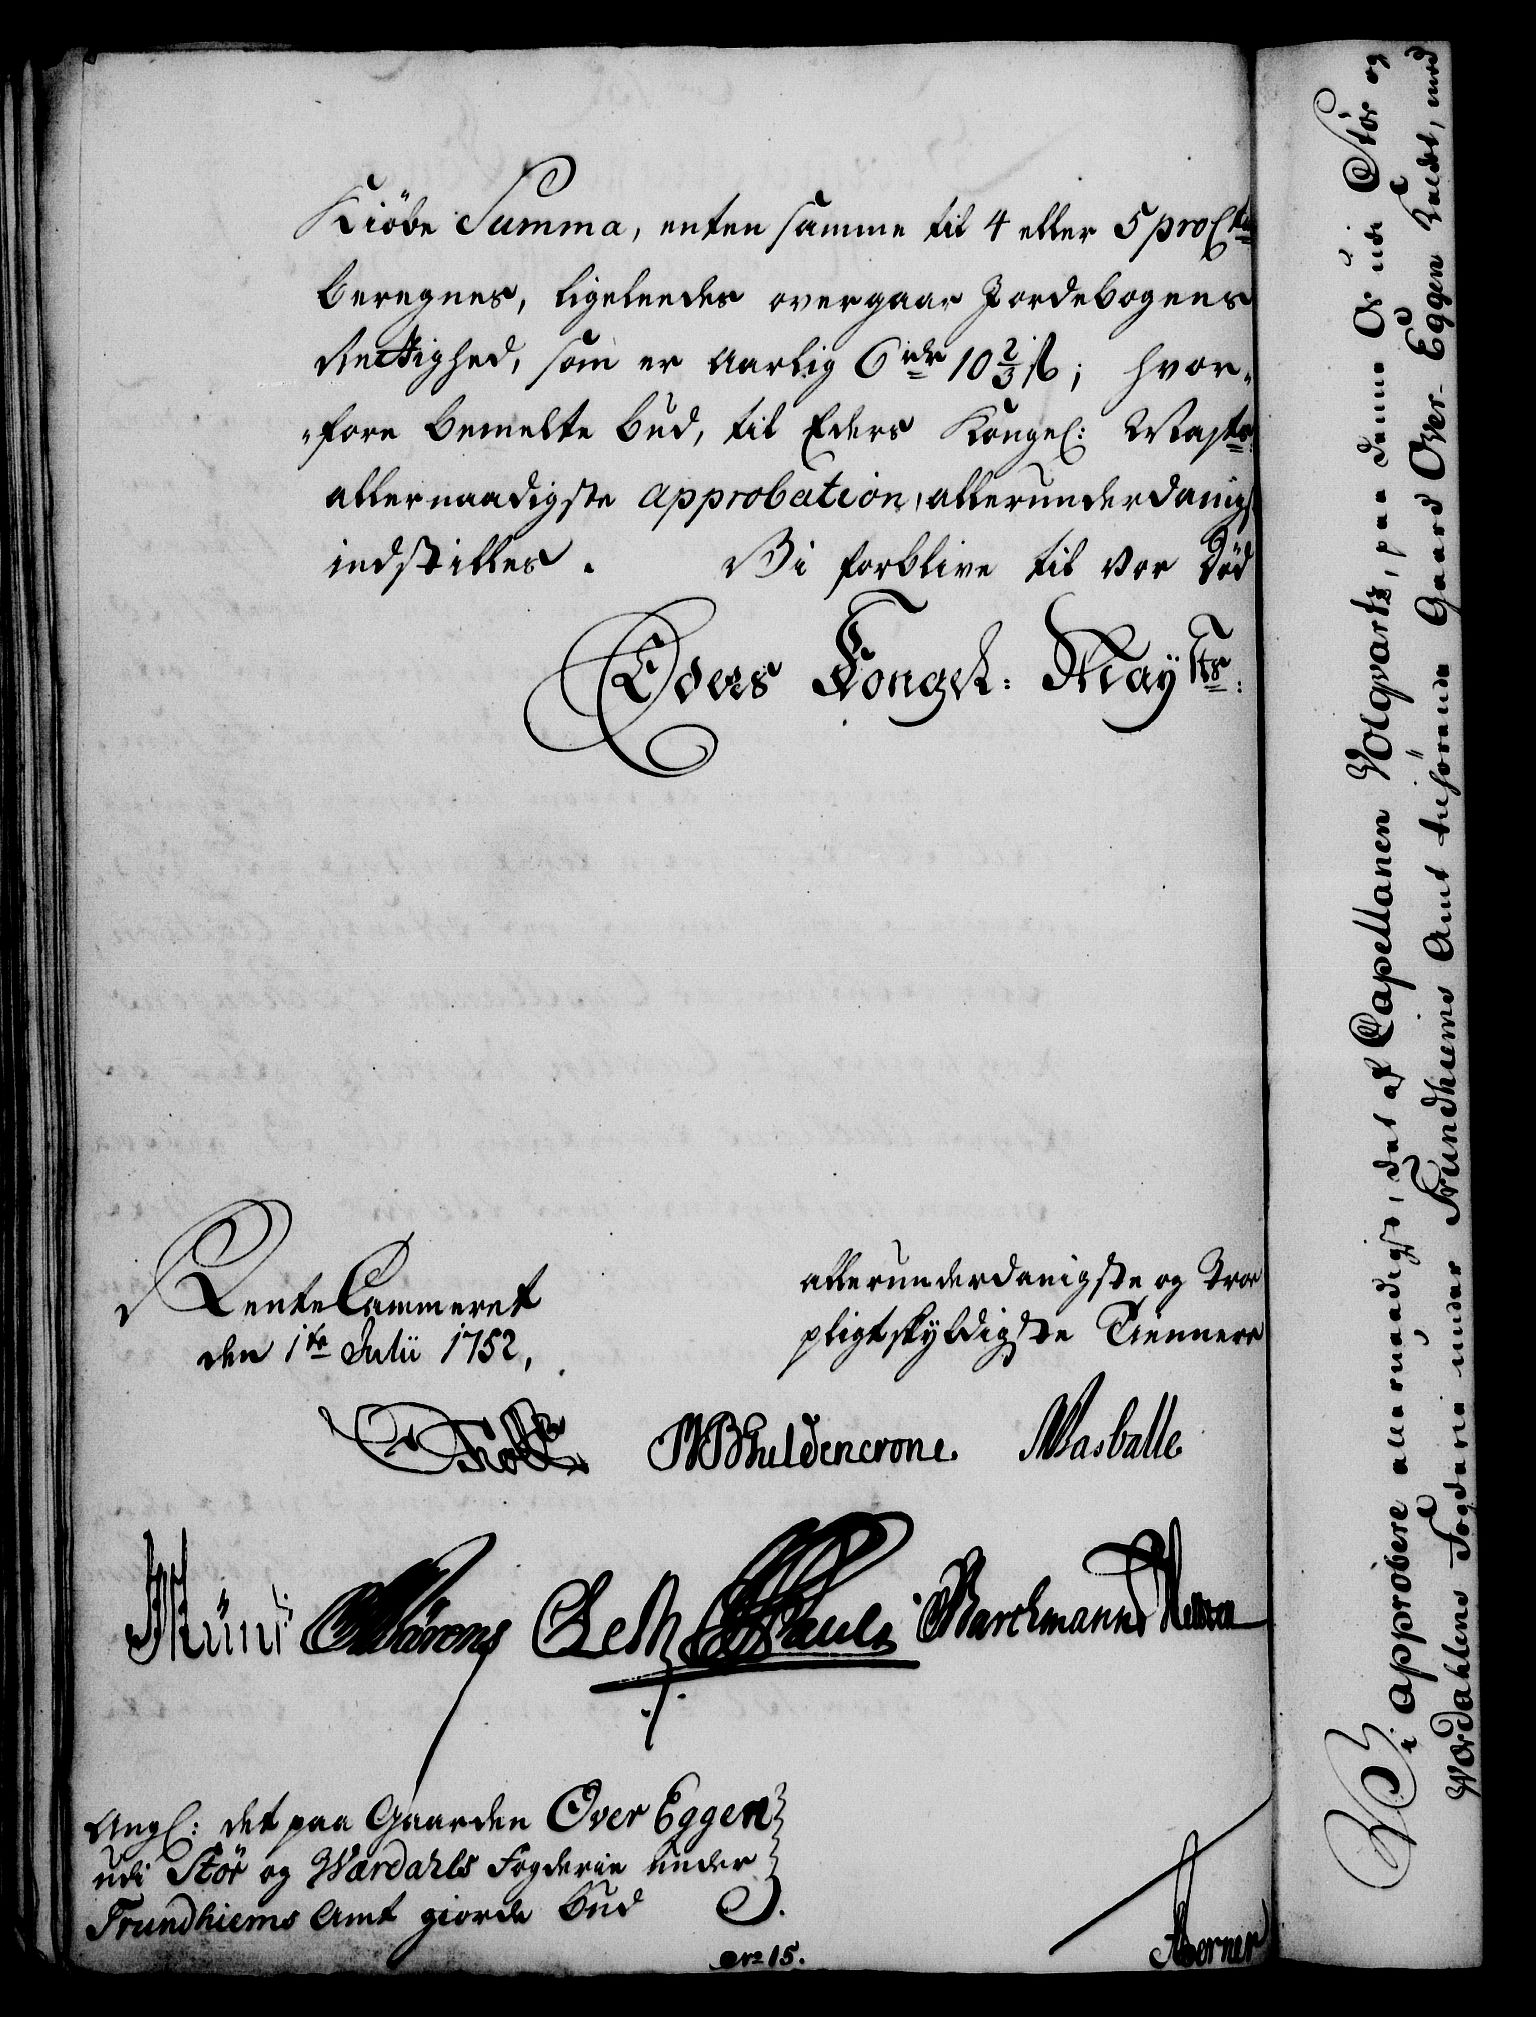 Kiöbe Summa, enten samme til 4 eller 5 pro Cto
beregnes, ligeleedes overgaar Jordebogens
Rettighed, som er aarlig 6 rdr 10 2/3 ß; hvor-
-fore bemelte bud, til Eders Kongel: Mayts
allernaadigste approbation, allerunderdanigst
indstilles. Vi forblive til vor Död
Eders Kongel: Mayts:
Rente Cammeret
den 1te Julii 1752,
allerunderdanigste og Troe
pligtskyldigste Tiennere
Holck MB Guldencrone. Wasballe
Barchmann
Ang: det paa Gaarden Over Eggen
udi Stör og Værdahls Fogderie under
Trundhiems Amt giorde bud
No 15.
Vi approbere allernaadigst, det af Capellanen Volqvartz, paa denne Os udi Stör og
Værdahlens Fogderie under Trundhiems Amt tilhörende Gaard Over-Eggen kaldet, med